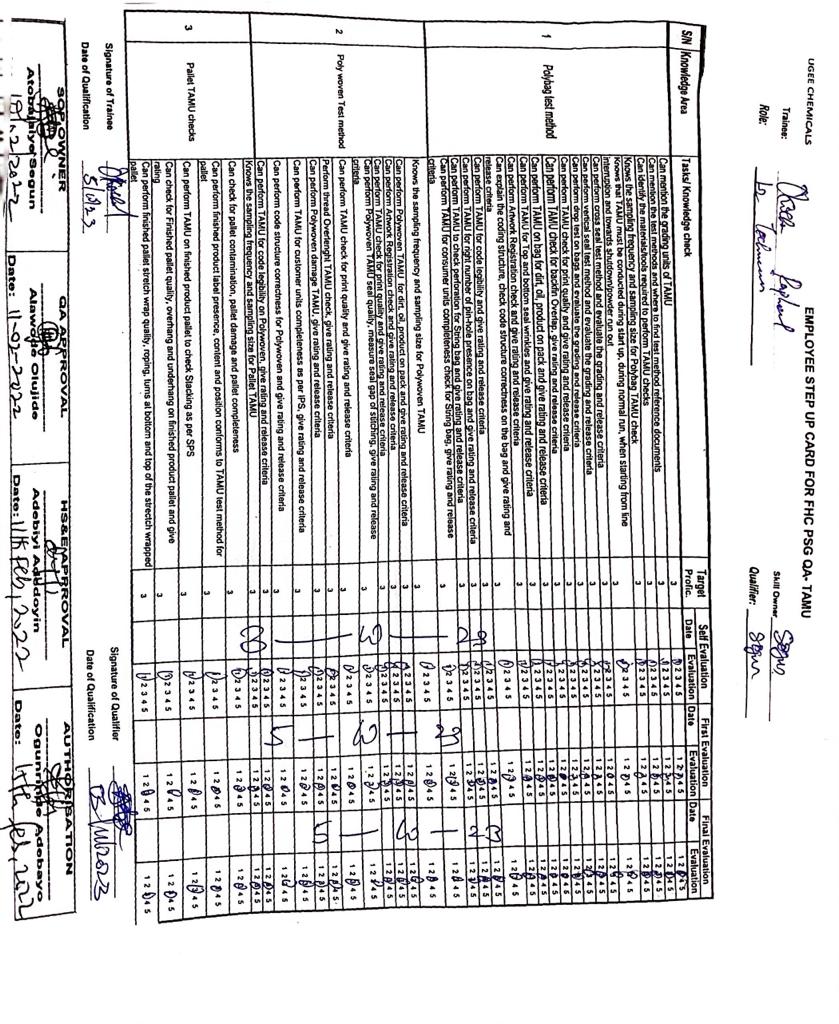 UGEE CHEMICALS
EMPLOYEE STEP UP CARD FOR FHC PSG QA- TAMU
Trainee: Raphael
Skill Owner: Segun
Role:
Qualifier: Segun
S/N Knowledge Area Tasks/ Knowledge check Target Profic. Self Evaluation Date Evaluation First Evaluation Date Evaluation Final Evaluation Date Evaluation
1 Polybag test method
Can mention the grading units of TAMU 3 1 2 3 4 5 1 2 3 4 5 1 2 3 4 5
Can mention the test methods and where to find test method reference documents 3 1 2 3 4 5 1 2 3 4 5 1 2 3 4 5
Can identify the materials/tools required to perform TAMU checks 3 1 2 3 4 5 1 2 3 4 5 1 2 3 4 5
Knows the sampling frequency and sampling size for Polybag TAMU check 3 1 2 3 4 5 1 2 3 4 5 1 2 3 4 5
Knows that TAMU must be conducted during start up, during normal run, when starting from line
interruption and towards shutdown/powder run out 3 1 2 3 4 5 1 2 3 4 5 1 2 3 4 5
Can perform cross seal test method and evaluate the grading and release criteria 3 1 2 3 4 5 1 2 3 4 5 1 2 3 4 5
Can perform vertical seal test method and evaluate the grading and release criteria 3 1 2 3 4 5 1 2 3 4 5 1 2 3 4 5
Can perform drop test on bags and evaluate the grading and release criteria 3 1 2 3 4 5 1 2 3 4 5 1 2 3 4 5
Can perform TAMU check for print quality and give rating and release criteria 3 1 2 3 4 5 1 2 3 4 5 1 2 3 4 5
Can perform TAMU check for backfin Overlap, give rating and release criteria 3 1 2 3 4 5 1 2 3 4 5 1 2 3 4 5
Can perform TAMU on bag for dirt, oil, product on pack, and give rating and release criteria 3 1 2 3 4 5 1 2 3 4 5 1 2 3 4 5
Can perform TAMU for Top and bottom seal wrinkles and give rating and release criteria 3 1 2 3 4 5 1 2 3 4 5 1 2 3 4 5
Can perform Artwork Registration check and give rating and release criteria 3 1 2 3 4 5 1 2 3 4 5 1 2 3 4 5
Can explain the coding structure, check code structure correctness on the bag and give rating and
release criteria 3 1 2 3 4 5 1 2 3 4 5 1 2 3 4 5
Can perform TAMU for code legibility and give rating and release criteria 3 1 2 3 4 5 1 2 3 4 5 1 2 3 4 5
Can perform TAMU for right number of pin-hole presence on bag and give rating and release criteria 3 1 2 3 4 5 1 2 3 4 5 1 2 3 4 5
Can perform TAMU to check perforation for String bag and give rating and release criteria 3 1 2 3 4 5 1 2 3 4 5 1 2 3 4 5
Can perform TAMU for consumer units completeness check for String bag, give rating and release
criteria 3 1 2 3 4 5 1 2 3 4 5 1 2 3 4 5
2 Poly woven Test method
Knows the sampling frequency and sampling size for Polywoven TAMU 3 1 2 3 4 5 1 2 3 4 5 1 2 3 4 5
Can perform Polywoven TAMU for dirt, oil, product on pack and give rating and release criteria 3 1 2 3 4 5 1 2 3 4 5 1 2 3 4 5
Can perform Artwork Registration check and give rating and release criteria 3 1 2 3 4 5 1 2 3 4 5 1 2 3 4 5
Can perform TAMU check for print quality and give rating and release criteria 3 1 2 3 4 5 1 2 3 4 5 1 2 3 4 5
Can perform Polywoven TAMU seal quality, measure seal gap of stitching, give rating and release
criteria 3 1 2 3 4 5 1 2 3 4 5 1 2 3 4 5
Can perform TAMU check for print quality and give rating and release criteria 3 1 2 3 4 5 1 2 3 4 5 1 2 3 4 5
Perform thread Overlenght TAMU check, give rating and release criteria 3 1 2 3 4 5 1 2 3 4 5 1 2 3 4 5
Can perform Polywoven damage TAMU, give rating and release criteria 3 1 2 3 4 5 1 2 3 4 5 1 2 3 4 5
Can perform TAMU for customer units completeness as per IPS, give rating and release criteria 3 1 2 3 4 5 1 2 3 4 5 1 2 3 4 5
Can perform code structure correctness for Polywoven and give rating and release criteria 3 1 2 3 4 5 1 2 3 4 5 1 2 3 4 5
Can perform TAMU for code legibility on Polywoven, give rating and release criteria 3 1 2 3 4 5 1 2 3 4 5 1 2 3 4 5
3 Pallet TAMU checks
Knows the sampling frequency and sampling size for Pallet TAMU 3 1 2 3 4 5 1 2 3 4 5 1 2 3 4 5
Can check for pallet contamination, pallet damage and pallet completeness 3 1 2 3 4 5 1 2 3 4 5 1 2 3 4 5
Can perform finished product label presence, content and position conforms to TAMU test method for
pallet 3 1 2 3 4 5 1 2 3 4 5 1 2 3 4 5
Can perform TAMU on finished product pallet to check Stacking as per SPS 3 1 2 3 4 5 1 2 3 4 5 1 2 3 4 5
Can check for Finished pallet quality, overhang and underhang on finished product pallet and give
rating 3 1 2 3 4 5 1 2 3 4 5 1 2 3 4 5
Can perform finished pallet stretch wrap quality, roping, turns at bottom and top of the strectch wrapped
pallet 3 1 2 3 4 5 1 2 3 4 5 1 2 3 4 5
Signature of Trainee
Signature of Qualifier
Date of Qualification
Date of Qualification
SOP OWNER QA APPROVAL HS&E APPROVAL AUTHORISATION
Atobajaiye Segun Alavede Olujide Adebiyi Adedoyin Ogunrinde Adebayo
Date: 11-02-2022 Date: 11th Feb, 2022 Date: 11th Feb, 2022